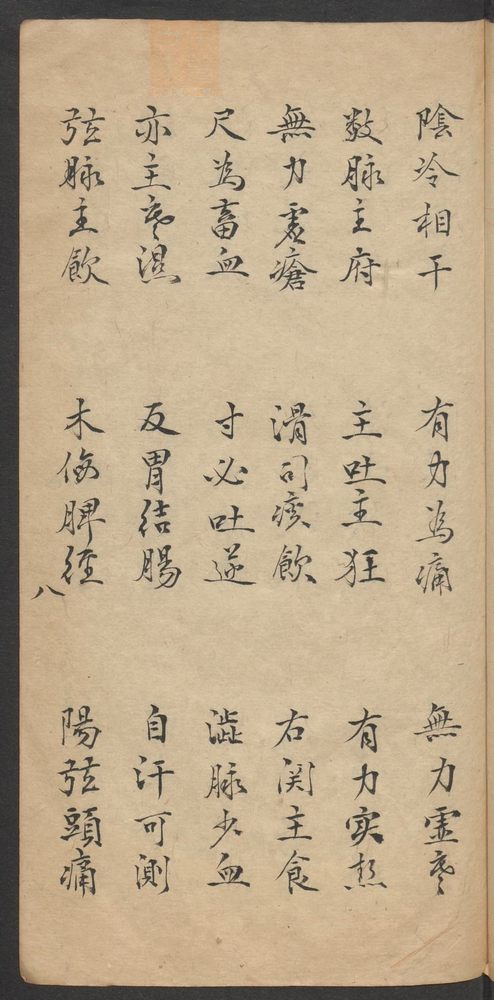 陰冷相干　有力為痛　無力虛寒
数脉主府　主吐主狂　有力实热
無力虛瘡　滑司痰飲　右関主食
尺為畜血　寸必吐逆　澁脉少血
亦主寒濕　反胃结腸　自汗可測
弦脉主飲　木侮脾經　陽弦頭痛
八